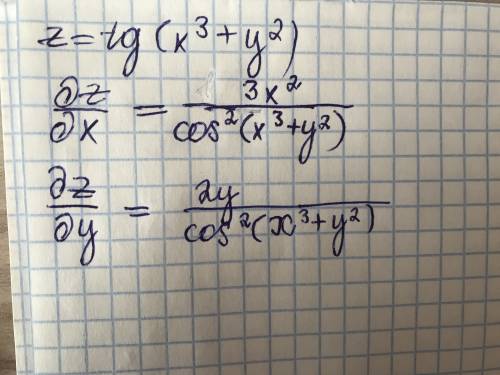 z = tg (x³ + y²)
∂z/∂x = 3x²/cos²(x³+y²)
∂z/∂y = 2y/cos²(x³+y²)